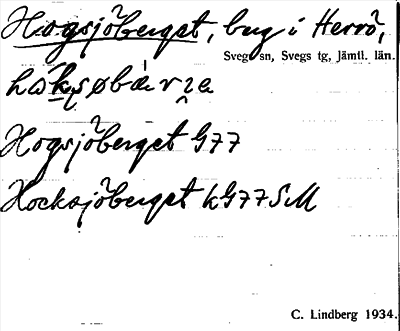 Hogsjöberget, berg i Herrö,
Sveg sn, Svegs tg, Jämtl. län.
Hogsjöberget G77
Hocksjöberget kG77SM
C. Lindberg 1934.